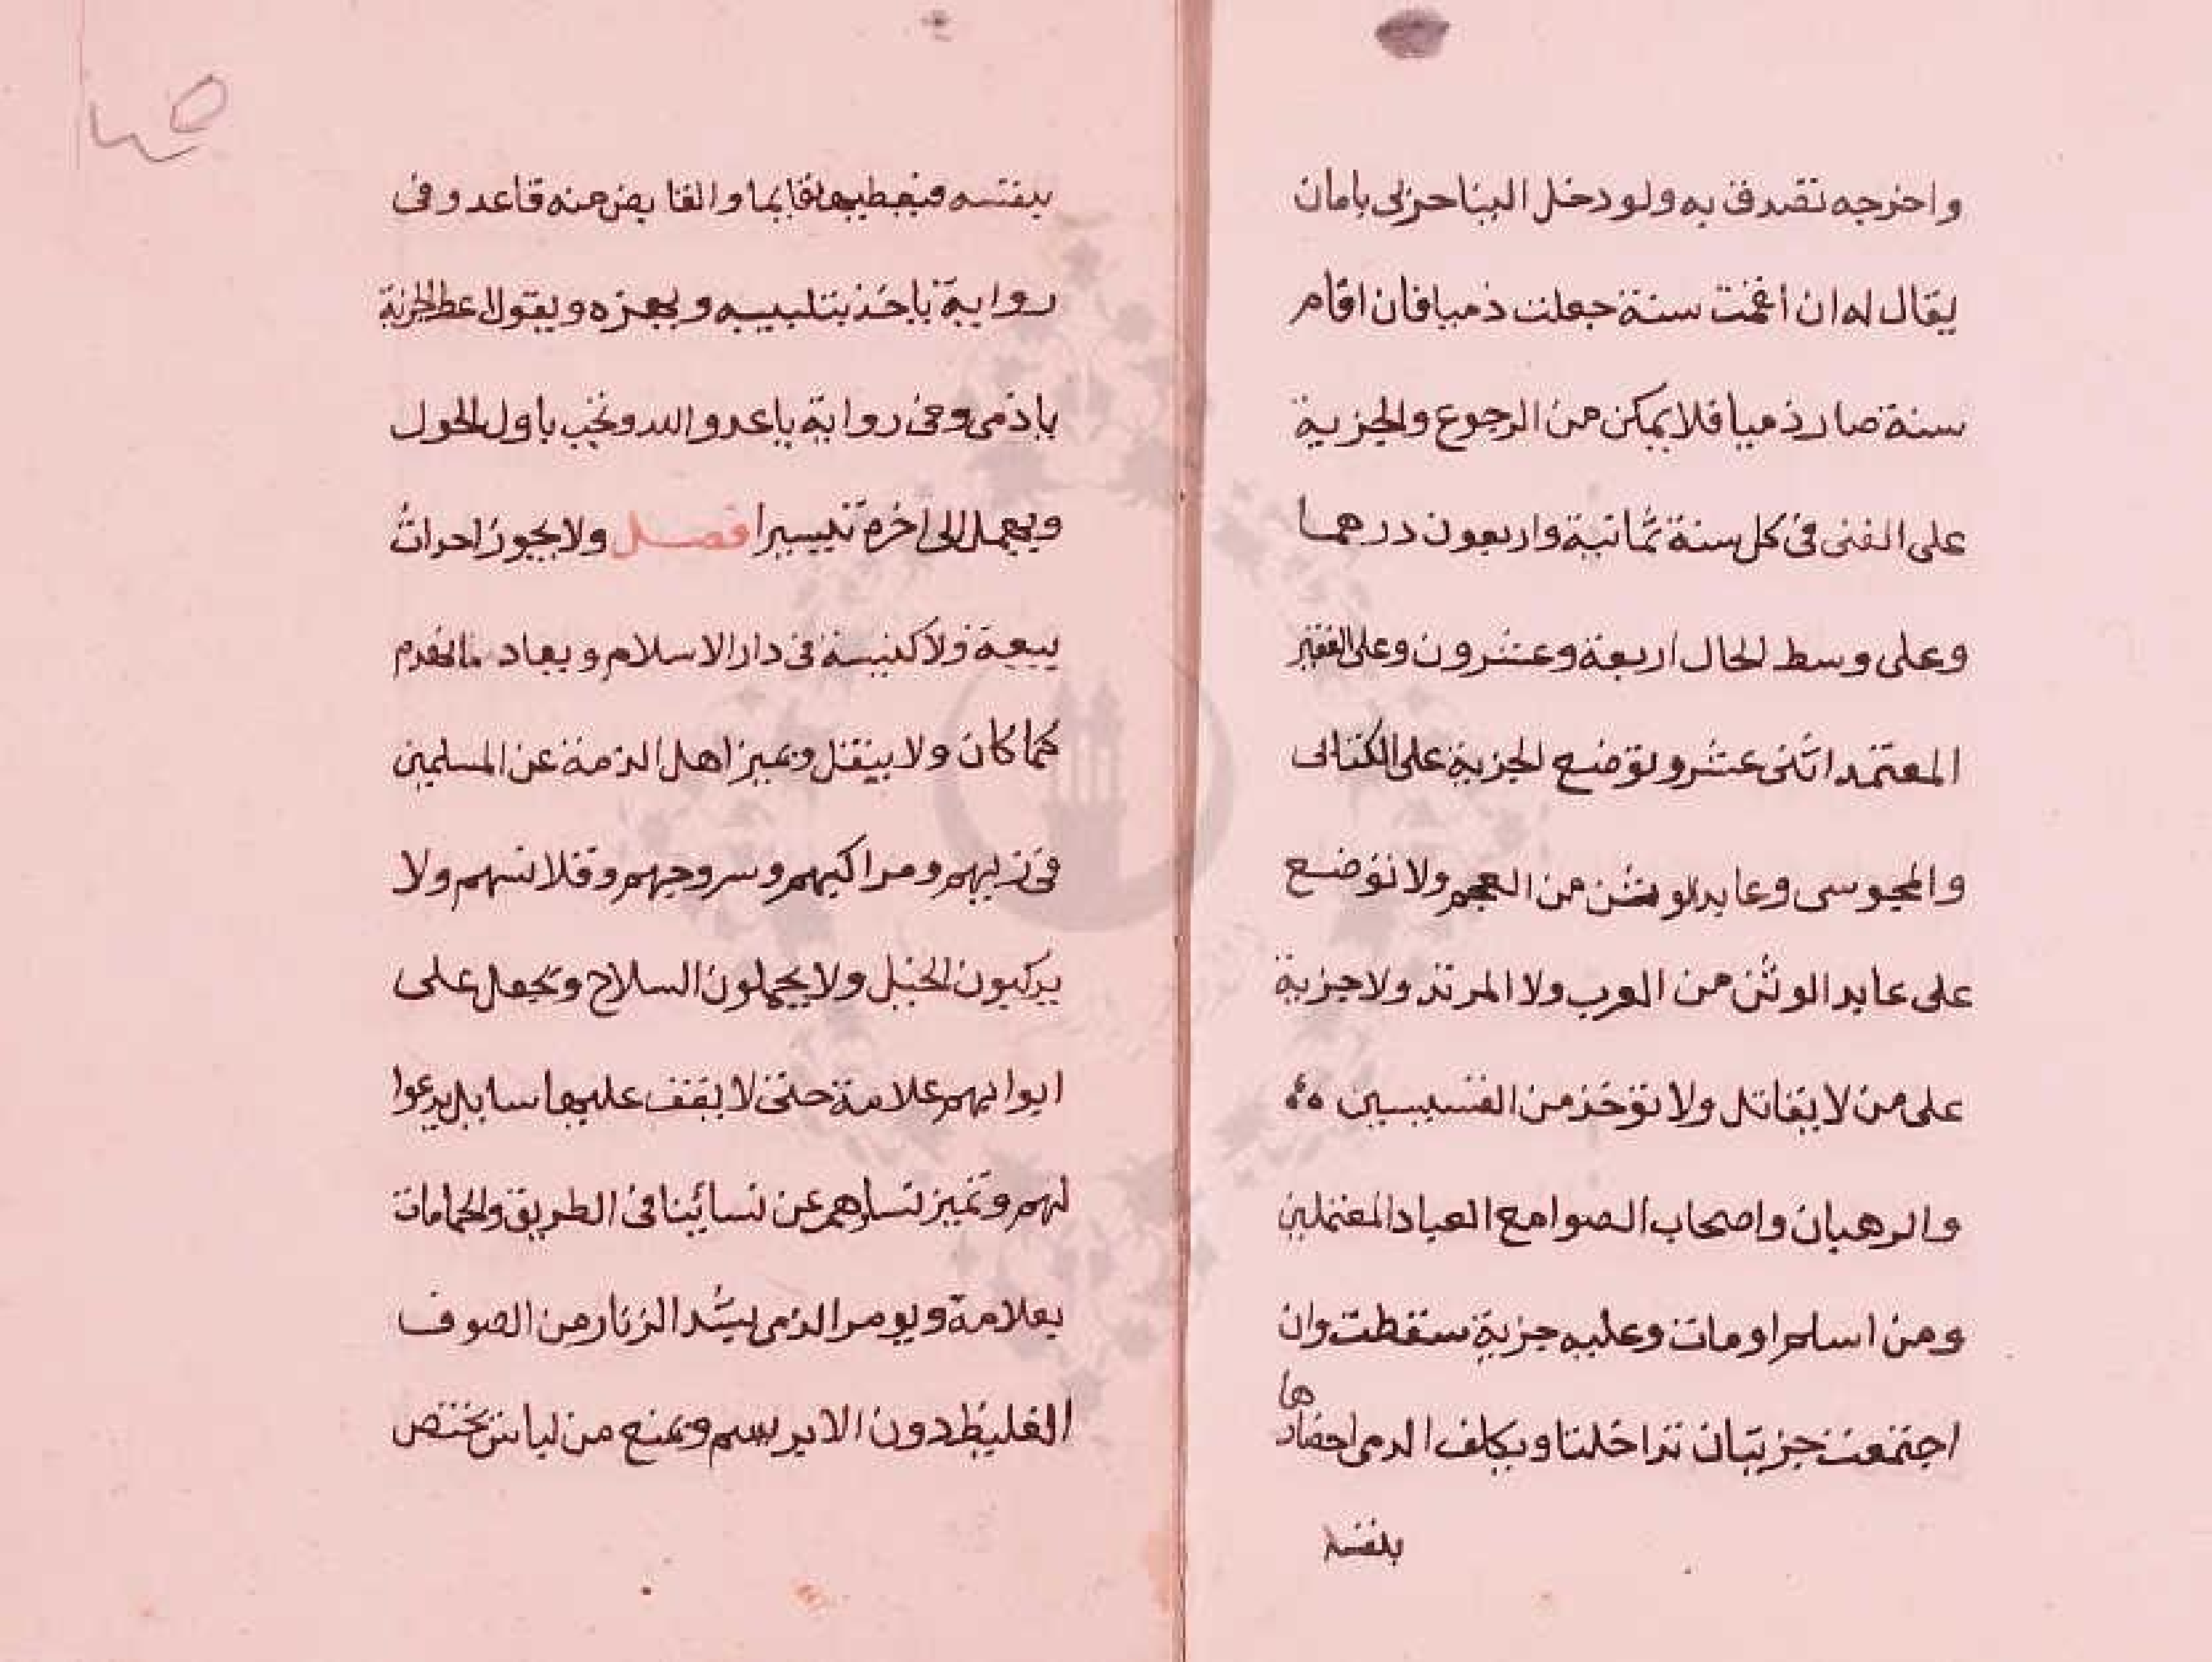 واخرجه تصدق به ولو دخل الينا حربى بامان
يقال له ان اقمت سنة جعلت ذميا فان اقام
سنة صار ذميا فلا يمكن من الرجوع والجزية
على الغنى فى كل سنة ثمانية واربعون درهما
وعلى وسط الحال اربعة وعشرون وعلى الفقير
المعتمد اثنى عشر وتوضع الجزية على الكتابى
والمجوسى وعابد الوثن من العجم ولا توضع
على عابد الوثن من العرب ولا المرتد ولا جزية
على من لا يقاتل ولا توخذ من القسيسين
والرهبان واصحاب الصوامع العباد المعتملين
ومن اسلم او مات وعليه جزية سقطت وان
اجتمعت جزيتان تداخلتا ويكلف الدمى احضارها
بنفسه
بنفسه فيعطيها قايما والقابض منه قاعد وفى
رواية ياخذ بتلبيبه ويهزه ويقول اعط الجزية
ياذمى وفى رواية ياعدو الله وتجب باول الحول
ويمهل الى اخره تيسيرا فصل ولا يجوز احداث
بيعة ولا كنيسة فى دار الاسلام ويعاد ما انهدم
كما كان ولا ينقل وتميز اهل الذمة عن المسلمين
فى زيهم ومراكبهم وسروجهم وقلانسهم ولا
يركبون الخيل ولا يحملون السلاح وتجعل على
ابوابهم علامة حتى لا يقف عليها سايل يدعوا
لهم وتميز نساوهم عن نسائنا فى الطريق والحمامات
بعلامة ويومر الذمى بشد الزنار من الصوف
الغليظ دون الابريسم ويمنع من لباس يختص